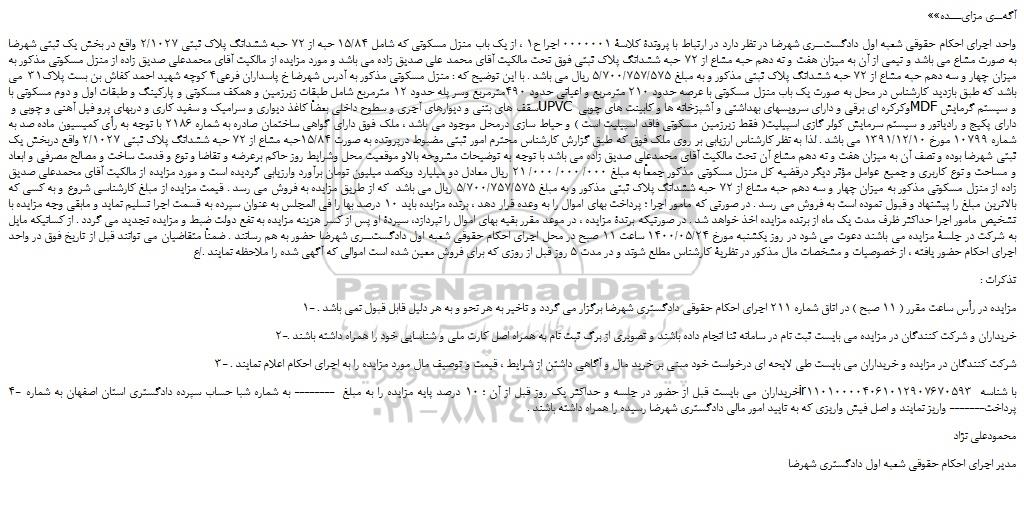 آگهــی مزایــــده»»
واحد اجرای احکام حقوقی شعبه اول دادگستــری شهرضا در نظر دارد در ارتباط با پروندة کلاسة 0000001 اجرا ح1 ، از یک باب منزل مسکونی که شامل 15/84 حبه از 72 حبه ششدانگ پلاک ثبتی 2/1027 واقع در بخش یک ثبتی شهرضا
به صورت مشاع می باشد و نیمی از آن به میزان هفت و نه دهم حبه مشاع از 72 حبه ششدانگ پلاک ثبتی فوق تحت مالکیت آقای محمد علی صدیق زاده می باشد و مورد مزایده از مالکیت آقای محمدعلی صدیق زاده از منزل مسکونی مذکور به
میزان چهار و سه دهم حبه مشاع از 72 حبه ششدانگ پلاک ثبتی مذکور و به مبلغ 5/700/757/575 ریال می باشد . با این توضیح که : منزل مسکونی مذکور به آدرس شهرضا خ پاسداران فرعی4 کوچه شهید احمد کفاش بن بست پلاک31 می
باشد که طبق بازدید کارشناس در محل به صورت یک باب منزل مسکونی با عرصه حدود 210 مترمربع و اعیانی حدود 490مترمربع وسر پله حدود 12 مترمربع شامل طبقات زیرزمین و همکف مسکونی و پارکینگ و طبقات اول و دوم مسکونی با
و سیستم گرمایش MDFوکرکره ای برقی و دارای سرویسهای بهداشتی و آشپزخانه ها و کابینت های چوبی UPVCسقف های بتنی و دیوارهای آجری و سطوح داخلی بعضاً کاغذ دیواری و سرامیک و سفید کاری و دربهای پروفیل آهنی و چوبی و
دارای پکیج و رادیاتور و سیستم سرمایش کولر گازی اسپیلیت( فقط زیرزمین مسکونی فاقد اسپیلیت است ) و حیاط سازی درمحل موجود می باشد ، ملک فوق دارای گواهی ساختمان صادره به شماره 2186 با توجه به رأی کمیسیون ماده صد به
شماره 10799 مورخ 1391/12/10 می باشد . لذا به نظر کارشناس ارزیابی بر روی ملک فوق که طبق گزارش کارشناس محترم امور ثبتی مضبوط درپرونده به صورت 15/84حبه مشاع از 72 حبه ششدانگ پلاک ثبتی 2/1027 واقع دربخش یک
ثبتی شهرضا بوده و نصف آن به میزان هفت و نه دهم مشاع آن تحت مالکیت آقای محمدعلی صدیق زاده می باشد با توجه به توضیحات مشروحه بالاو موقعیت محل وشرایط روز حاکم برعرضه و تقاضا و نوع و قدمت ساخت و مصالح مصرفی و ابعاد
و مساحت و نوع کاربری و جمیع عوامل مؤثر دیگر درقضیه کل منزل مسکونی مذکور جمعاً به مبلغ 000/ 000/ 000/ 21 ریال معادل دو میلیارد ویکصد میلیون تومان برآورد وارزیابی گردیده است و مورد مزایده از مالکیت آقای محمدعلی صدیق
زاده از منزل مسکونی مذکور به میزان چهار و سه دهم حبه مشاع از 72 حبه ششدانگ پلاک ثبتی مذکور و به مبلغ 5/700/757/575 ریال می باشد که از طریق مزایده به فروش می رسد . قیمت مزایده از مبلغ کارشناسی شروع و به کسی که
بالاترین مبلغ را پیشنهاد و قبول نموده است به فروش می رسد . در صورتی که مامور اجرا ؛ پرداخت بهای اموال را به وعده قرار دهد ، برنده مزایده باید 10 درصد بها را فی المجلس به عنوان سپرده به قسمت اجرا تسلیم نماید و مابقی وجه مزایده با
تشخیص مامور اجرا حداکثر ظرف مدت یک ماه از برنده مزایده اخذ خواهد شد . در صورتیکه برندة مزایده ، در موعد مقرر بقیه بهای اموال را نپردازد، سپردة او پس از کسر هزینه مزایده به نفع دولت ضبط و مزایده تجدید می گردد . از کسانیکه مایل
به شرکت در جلسة مزایده می باشند دعوت می شود در روز یکشنبه مورخ 1400/05/24 ساعت 11 صبح در محل اجرای احکام حقوقی شعبه اول دادگستــری شهرضا حضور به هم رسانند . ضمناً متقاضیان می توانند قبل از تاریخ فوق در واحد
اجرای احکام حضور یافته ، از خصوصیات و مشخصات مال مذکور در نظریة کارشناس مطلع شوند و در مدت 5 روز قبل از روزی که برای فروش معین شده است اموالی که آگهی شده را ملاحظه نمایند .اع
تذکرات :
مزایده در رأس ساعت مقرر ( 11 صبح ) در اتاق شماره 211 اجرای احکام حقوقی دادگستری شهرضا برگزار می گردد و تاخیر به هر نحو و به هر دلیل قابل قبول نمی باشد . -1
خریداران و شرکت کنندگان در مزایده می بایست ثبت نام در سامانه ثنا انجام داده باشند و تصویری از برگ ثبت نام به همراه اصل کارت ملی و شناسایی خود را همراه داشته باشند .-2
شرکت کنندگان در مزایده و خریداران می بایست طی لایحه ای درخواست خود مبنی بر خرید مال و آگاهی داشتن از شرایط ، قیمت و توصیف مال مورد مزایده را به اجرای احکام اعلام نمایند . -3
با شناسه ir110100004061012907670593خریداران می بایست قبل از حضور در جلسه و حداکثر یک روز قبل از آن ؛ 10 درصد پایه مزایده را به مبلغ -------- به شماره شبا حساب سپرده دادگستری استان اصفهان به شماره -4
پرداخت------- واریز نمایند و اصل فیش واریزی که به تایید امور مالی دادگستری شهرضا رسیده را همراه داشته باشند .
محمودعلی نژاد
مدیر اجرای احکام حقوقی شعبه اول دادگستری شهرضا
ParsNamadData
021-88349670-5